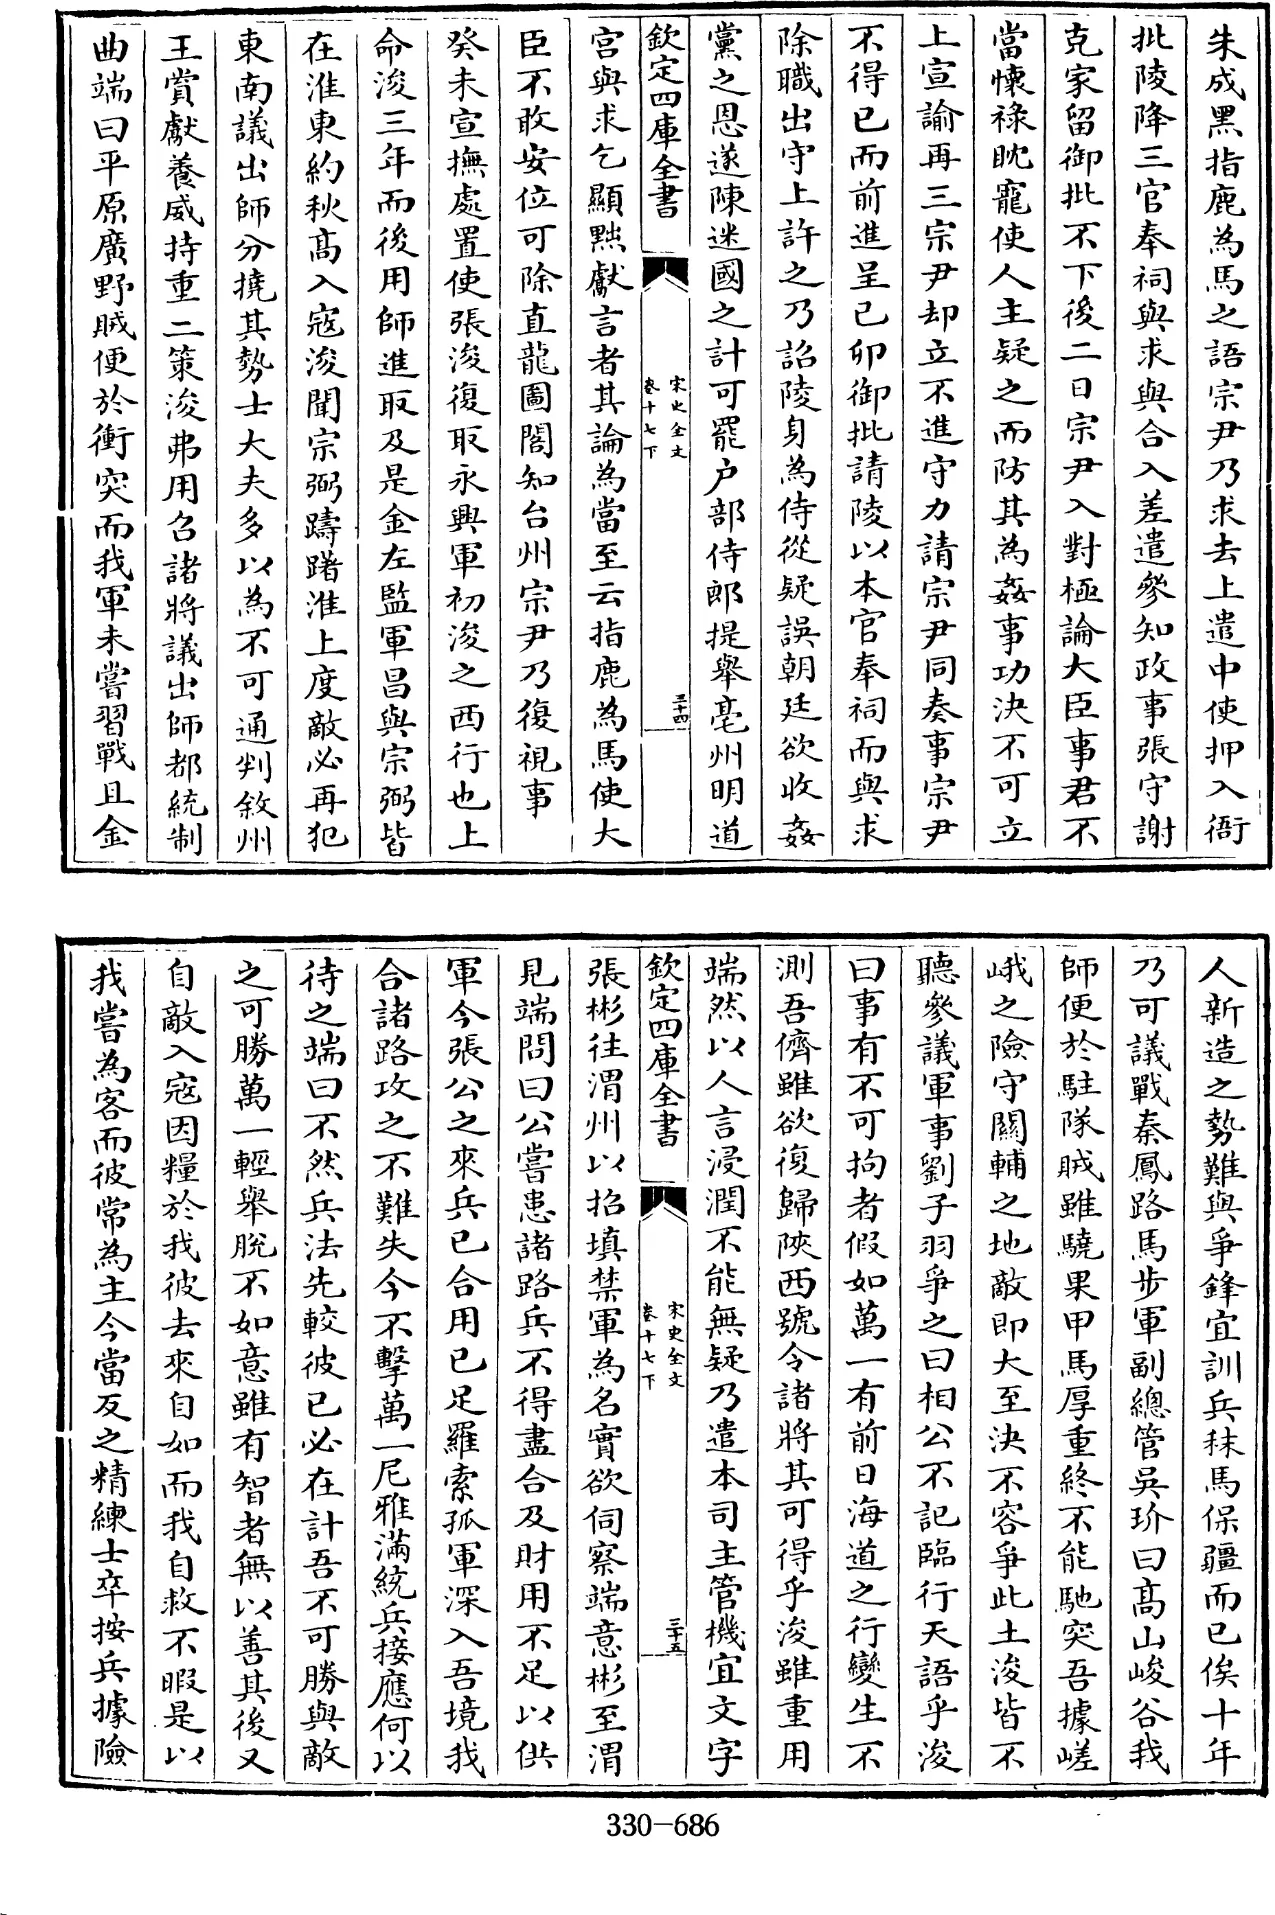 朱成黑指鹿為馬之語宗尹乃求去上遣中使押入衙
批陵降三官奉祠與求與合入差遣參知政事張守謝
克家留御批不下後二日宗尹入對極論大臣事君不
當懷祿眈寵使人主疑之而防其為姦事功決不可立
上宣諭再三宗尹却立不進守力請宗尹同奏事宗尹
不得已而前進呈已卯御批請陵以本官奉祠而與求
除職出守上許之乃詔陵身為侍從疑誤朝廷欲收姦
黨之恩遂陳迷國之計可罷户部侍郎提舉亳州明道
欽定四庫全書
宋史全文
卷十七下
三十四
宮與求乞顯黜獻言者其論為當至云指鹿為馬使大
臣不敢安位可除直龍圖閣知台州宗尹乃復視事
癸未宣撫處置使張浚復取永興軍初浚之西行也上
命浚三年而後用師進取及是金左監軍昌與宗弼皆
在淮東約秋高入寇浚聞宗弼躊躇淮上度敵必再犯
東南議出師分撓其勢士大夫多以為不可通判敘州
王賞獻養威持重二策浚弗用召諸將議出師都統制
曲端曰平原廣野賊便於衝突而我軍未嘗習戰且金
人新造之勢難與爭鋒宜訓兵秣馬保疆而已俟十年
乃可議戰秦鳳路馬步軍副總管吳玠曰髙山峻谷我
師便於駐隊賊雖驍果甲馬厚重終不能馳突吾據嵯
峨之險守關輔之地敵即大至決不容爭此土浚皆不
聽參議軍事劉子羽爭之曰相公不記臨行天語乎浚
曰事有不可拘者假如萬一有前日海道之行變生不
測吾儕雖欲復歸陝西號令諸將其可得乎浚雖重用
端然以人言浸潤不能無疑乃遣本司主管機宜文字
欽定四庫全書
宋史全文
卷十七下
三十五
張彬往渭州以招填禁軍為名實欲伺察端意彬至渭
見端問曰公嘗患諸路兵不得盡合及財用不足以供
軍今張公之來兵已合用已足羅索孤軍深入吾境我
合諸路攻之不難失今不擊萬一尼雅滿統兵接應何以
待之端曰不然兵法先較彼已必在計吾不可勝與敵
之可勝萬一輕舉脫不如意雖有智者無以善其後又
自敵入寇因糧於我彼去來自如而我自救不暇是以
我嘗為客而彼常為主今當反之精練士卒按兵據險
330-686